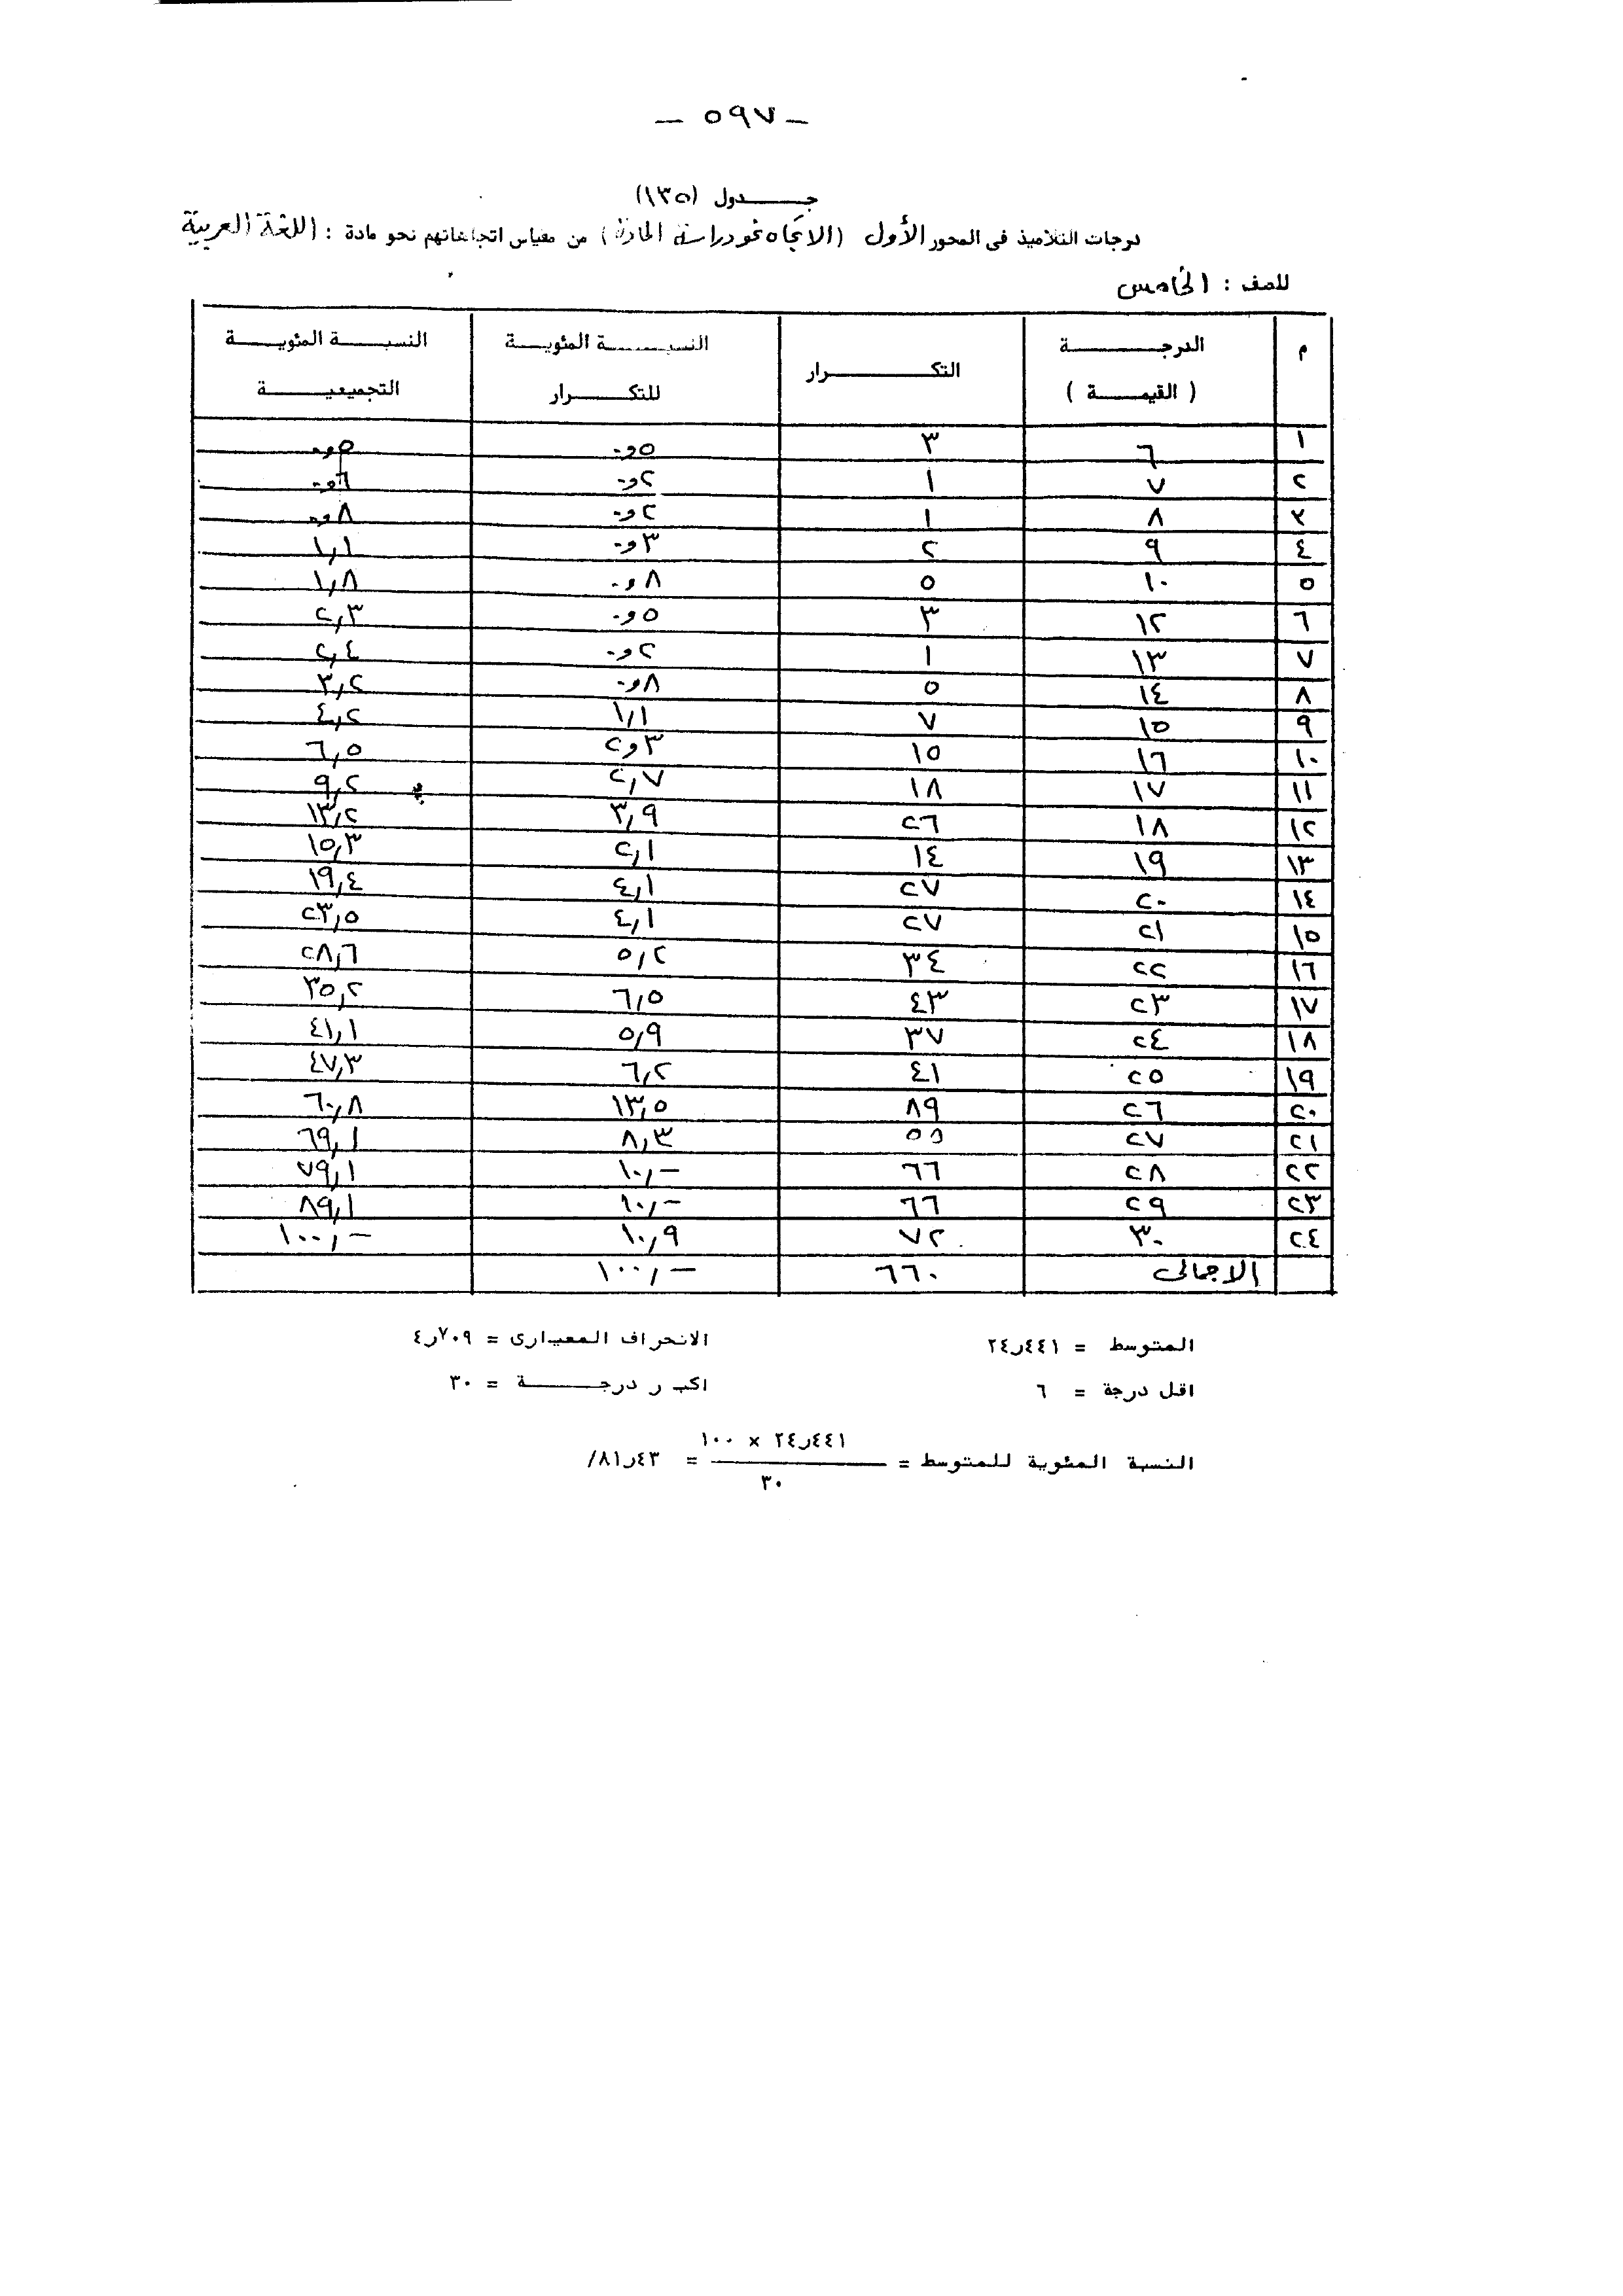 — ٥٩٧ —
جـــدول (١٣٥)
درجات التلاميذ فى المحور الأول (الاتجاه نحو دراسة المادة) من مقياس اتجاهاتهم نحو مادة : اللغة العربية
للصف : الخامس
م الدرجـــة (القيمـــة) التكـــرار النسبـــة المئويـــة للتكـــرار النسبـــة المئويـــة التجميعيـــة
١ ٦ ٣ ٥و٠ ٥و٠
٢ ٧ ١ ٢و٠ ٦و٠
٣ ٨ ١ ٢و٠ ٨و٠
٤ ٩ ٢ ٣و٠ ١,١
٥ ١٠ ٥ ٨و٠ ١,٨
٦ ١٢ ٣ ٥و٠ ٢,٣
٧ ١٣ ١ ٢و٠ ٢,٤
٨ ١٤ ٥ ٨و٠ ٣,٢
٩ ١٥ ٧ ١,١ ٤,٢
١٠ ١٦ ١٥ ٣و٢ ٦,٥
١١ ١٧ ١٨ ٢,٧ ٩,٢
١٢ ١٨ ٢٦ ٣,٩ ١٣,٢
١٣ ١٩ ١٤ ٢,١ ١٥,٣
١٤ ٢٠ ٢٧ ٤,١ ١٩,٤
١٥ ٢١ ٢٧ ٤,١ ٢٣,٥
١٦ ٢٢ ٣٤ ٥,٢ ٢٨,٦
١٧ ٢٣ ٤٣ ٦,٥ ٣٥,٢
١٨ ٢٤ ٣٧ ٥,٩ ٤١,١
١٩ ٢٥ ٤١ ٦,٢ ٤٧,٣
٢٠ ٢٦ ٨٩ ١٣,٥ ٦٠,٨
٢١ ٢٧ ٥٥ ٨,٣ ٦٩,١
٢٢ ٢٨ ٦٦ ١٠,− ٧٩,١
٢٣ ٢٩ ٦٦ ١٠,− ٨٩,١
٢٤ ٣٠ ٧٢ ١٠,٩ ١٠٠,−
الاجمالى ٦٦٠ ١٠٠,−
المتوسط = ٤٤١ر٢٤ الانحراف المعيارى = ٧٠٩ر٤
اقل درجة = ٦ اكبر درجـــة = ٣٠
النسبة المئوية للمتوسط = ٤٤١ر٢٤ × ١٠٠ / ٣٠ = ٤٣ر٨١/